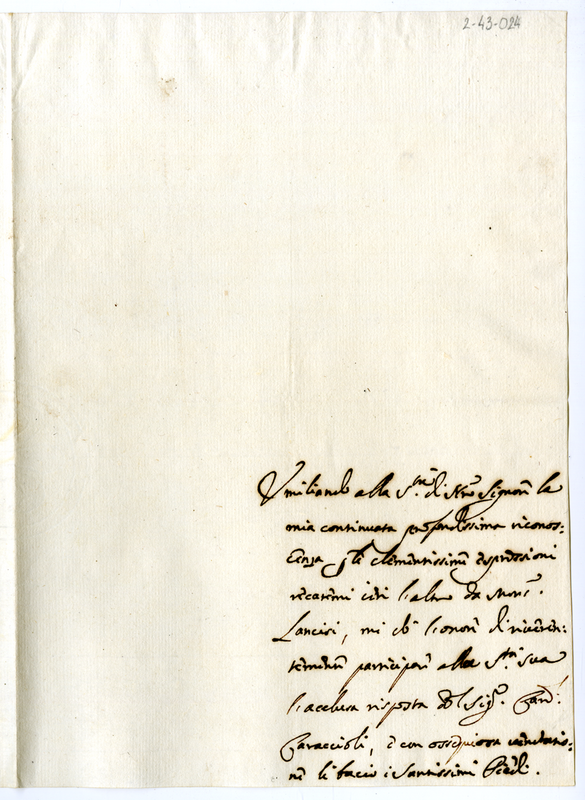 2-43-024
Umiliando alla S.tà di Nro Signore la
mia continuata profondissima riconos=
cenza p le clementissime espressioni
recatemi ieri l'altro da Mons.r
Lancisi, mi dò l'onore di riveren=
temente participare alla S.tà Sua
l'acclusa risposta del Sig.r Card.
Caraccioli, e con ossequiosa
ne li bacio i Santissimi Piedi.